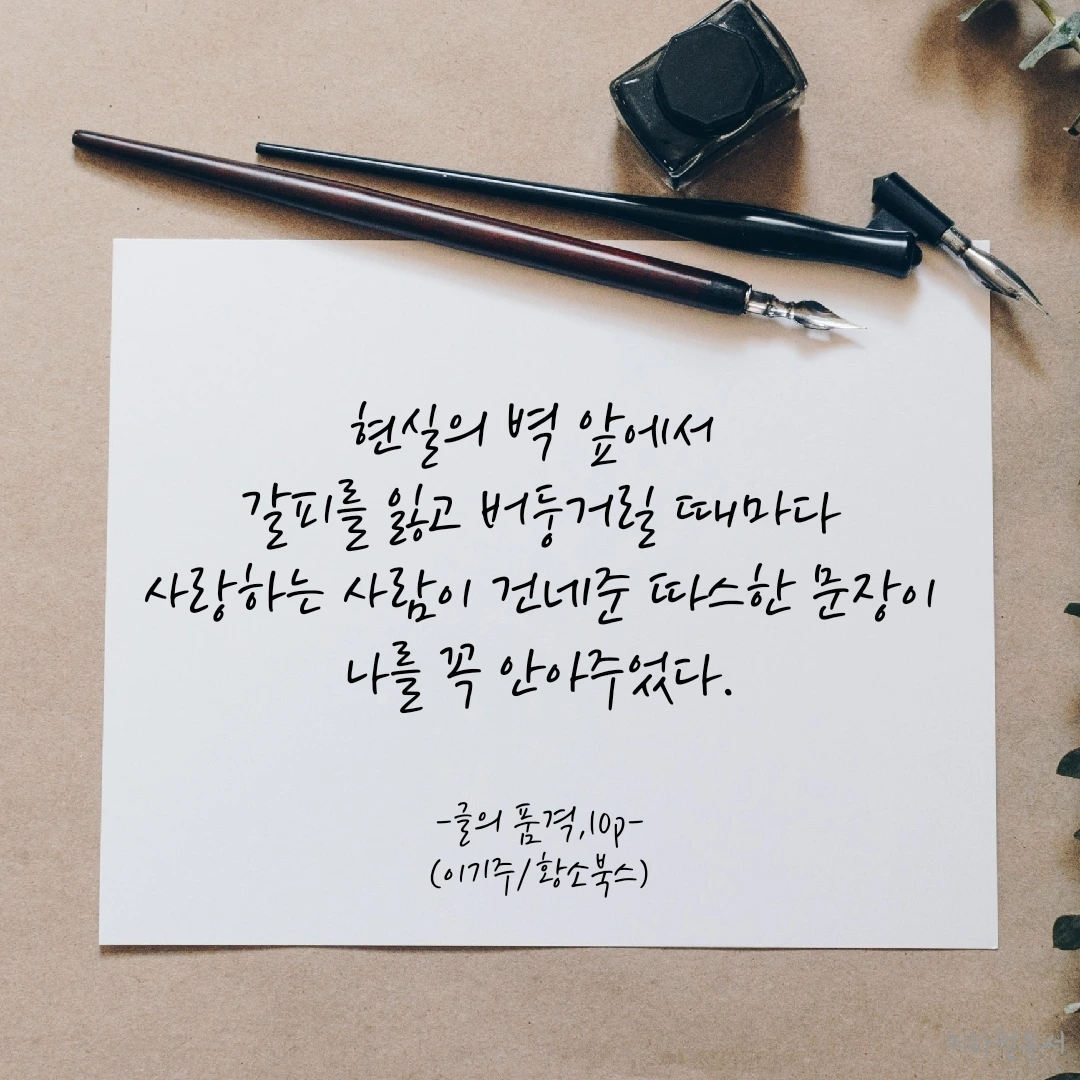 현실의 벽 앞에서
갈피를 잃고 버둥거릴 때마다
사랑하는 사람이 건네준 따스한 문장이
나를 꼭 안아주었다.
-글의 품격,10p-
(이기주/황소북스)